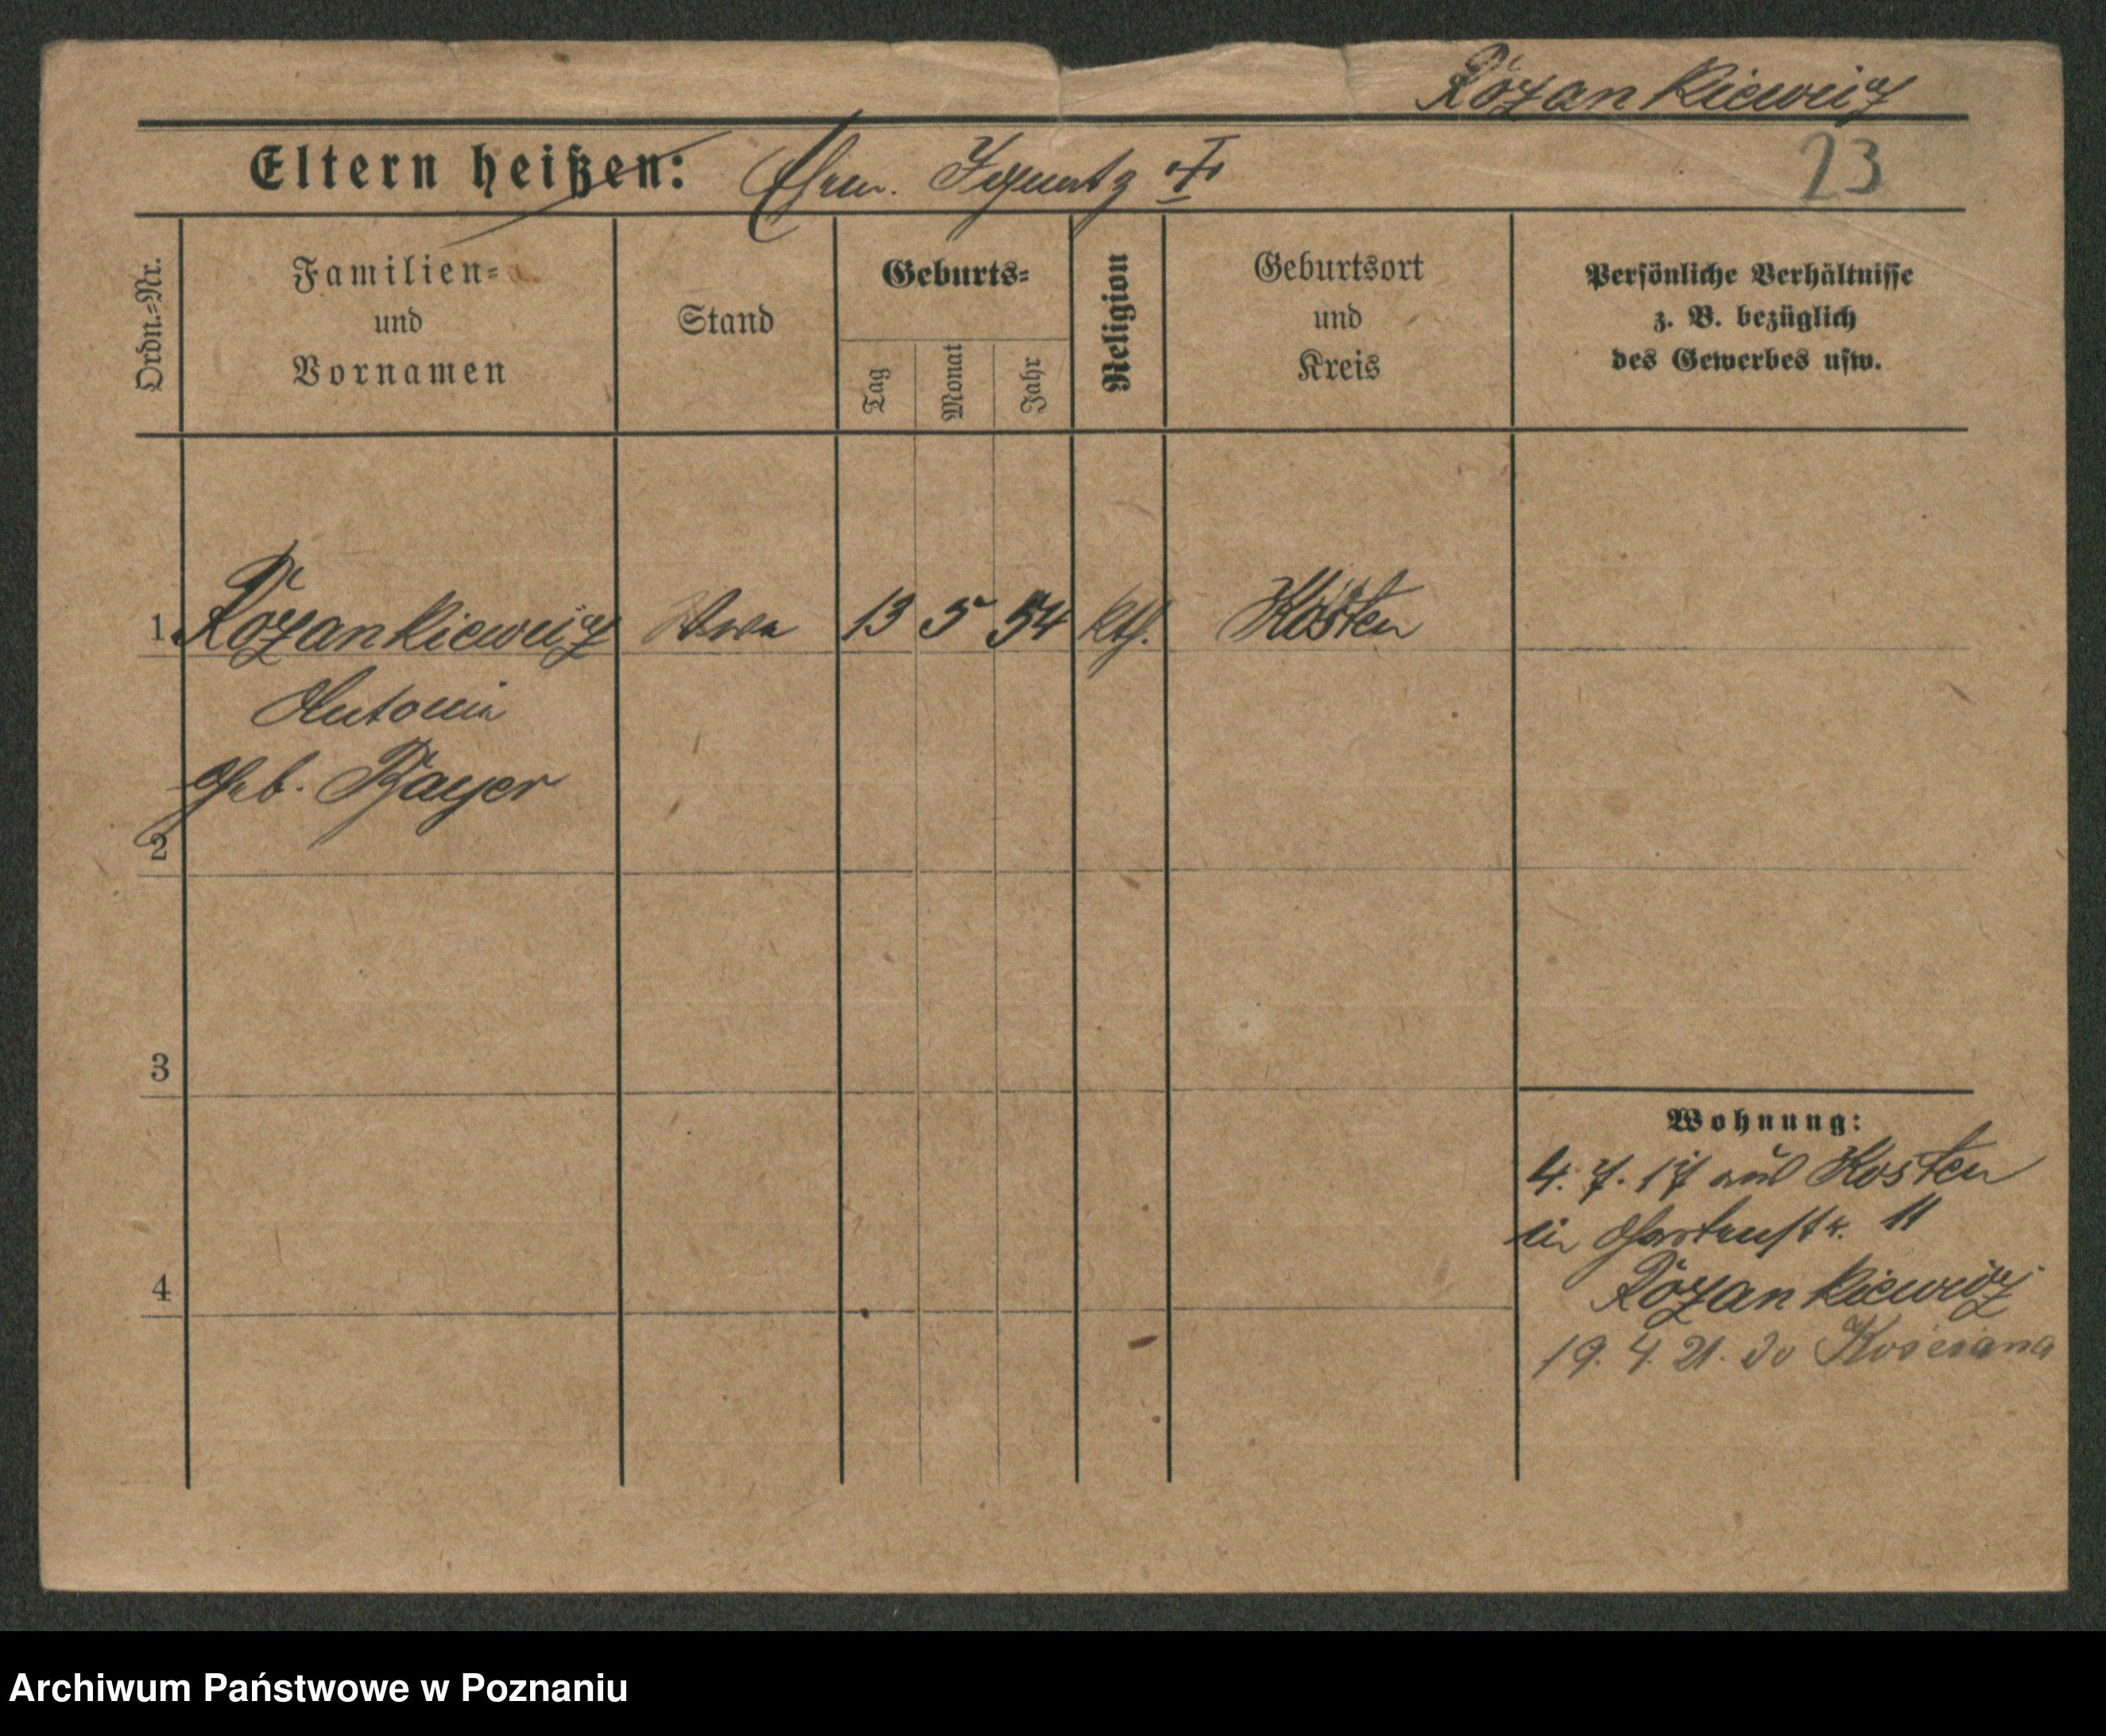 Rożankiewicz
Eltern heißen: Ehem. Ignatz †
23
Ordn.-Nr.
Familien-
und
Vornamen
Stand
Geburts-
Tag
Monat
Jahr
Religion
Geburtsort
und
Kreis
Persönliche Verhältnisse
z. B. bezüglich
des Gewerbes usw.
1 Rożankiewicz Wwe 13 5 54 kth. Kosten
Antonia
geb. Bayer
2
3
4
Wohnung:
4. 7. 17 aus Kosten
in Gartenstr. 11
Rożankiewicz
19. 4. 21. do Kościana
Archiwum Państwowe w Poznaniu